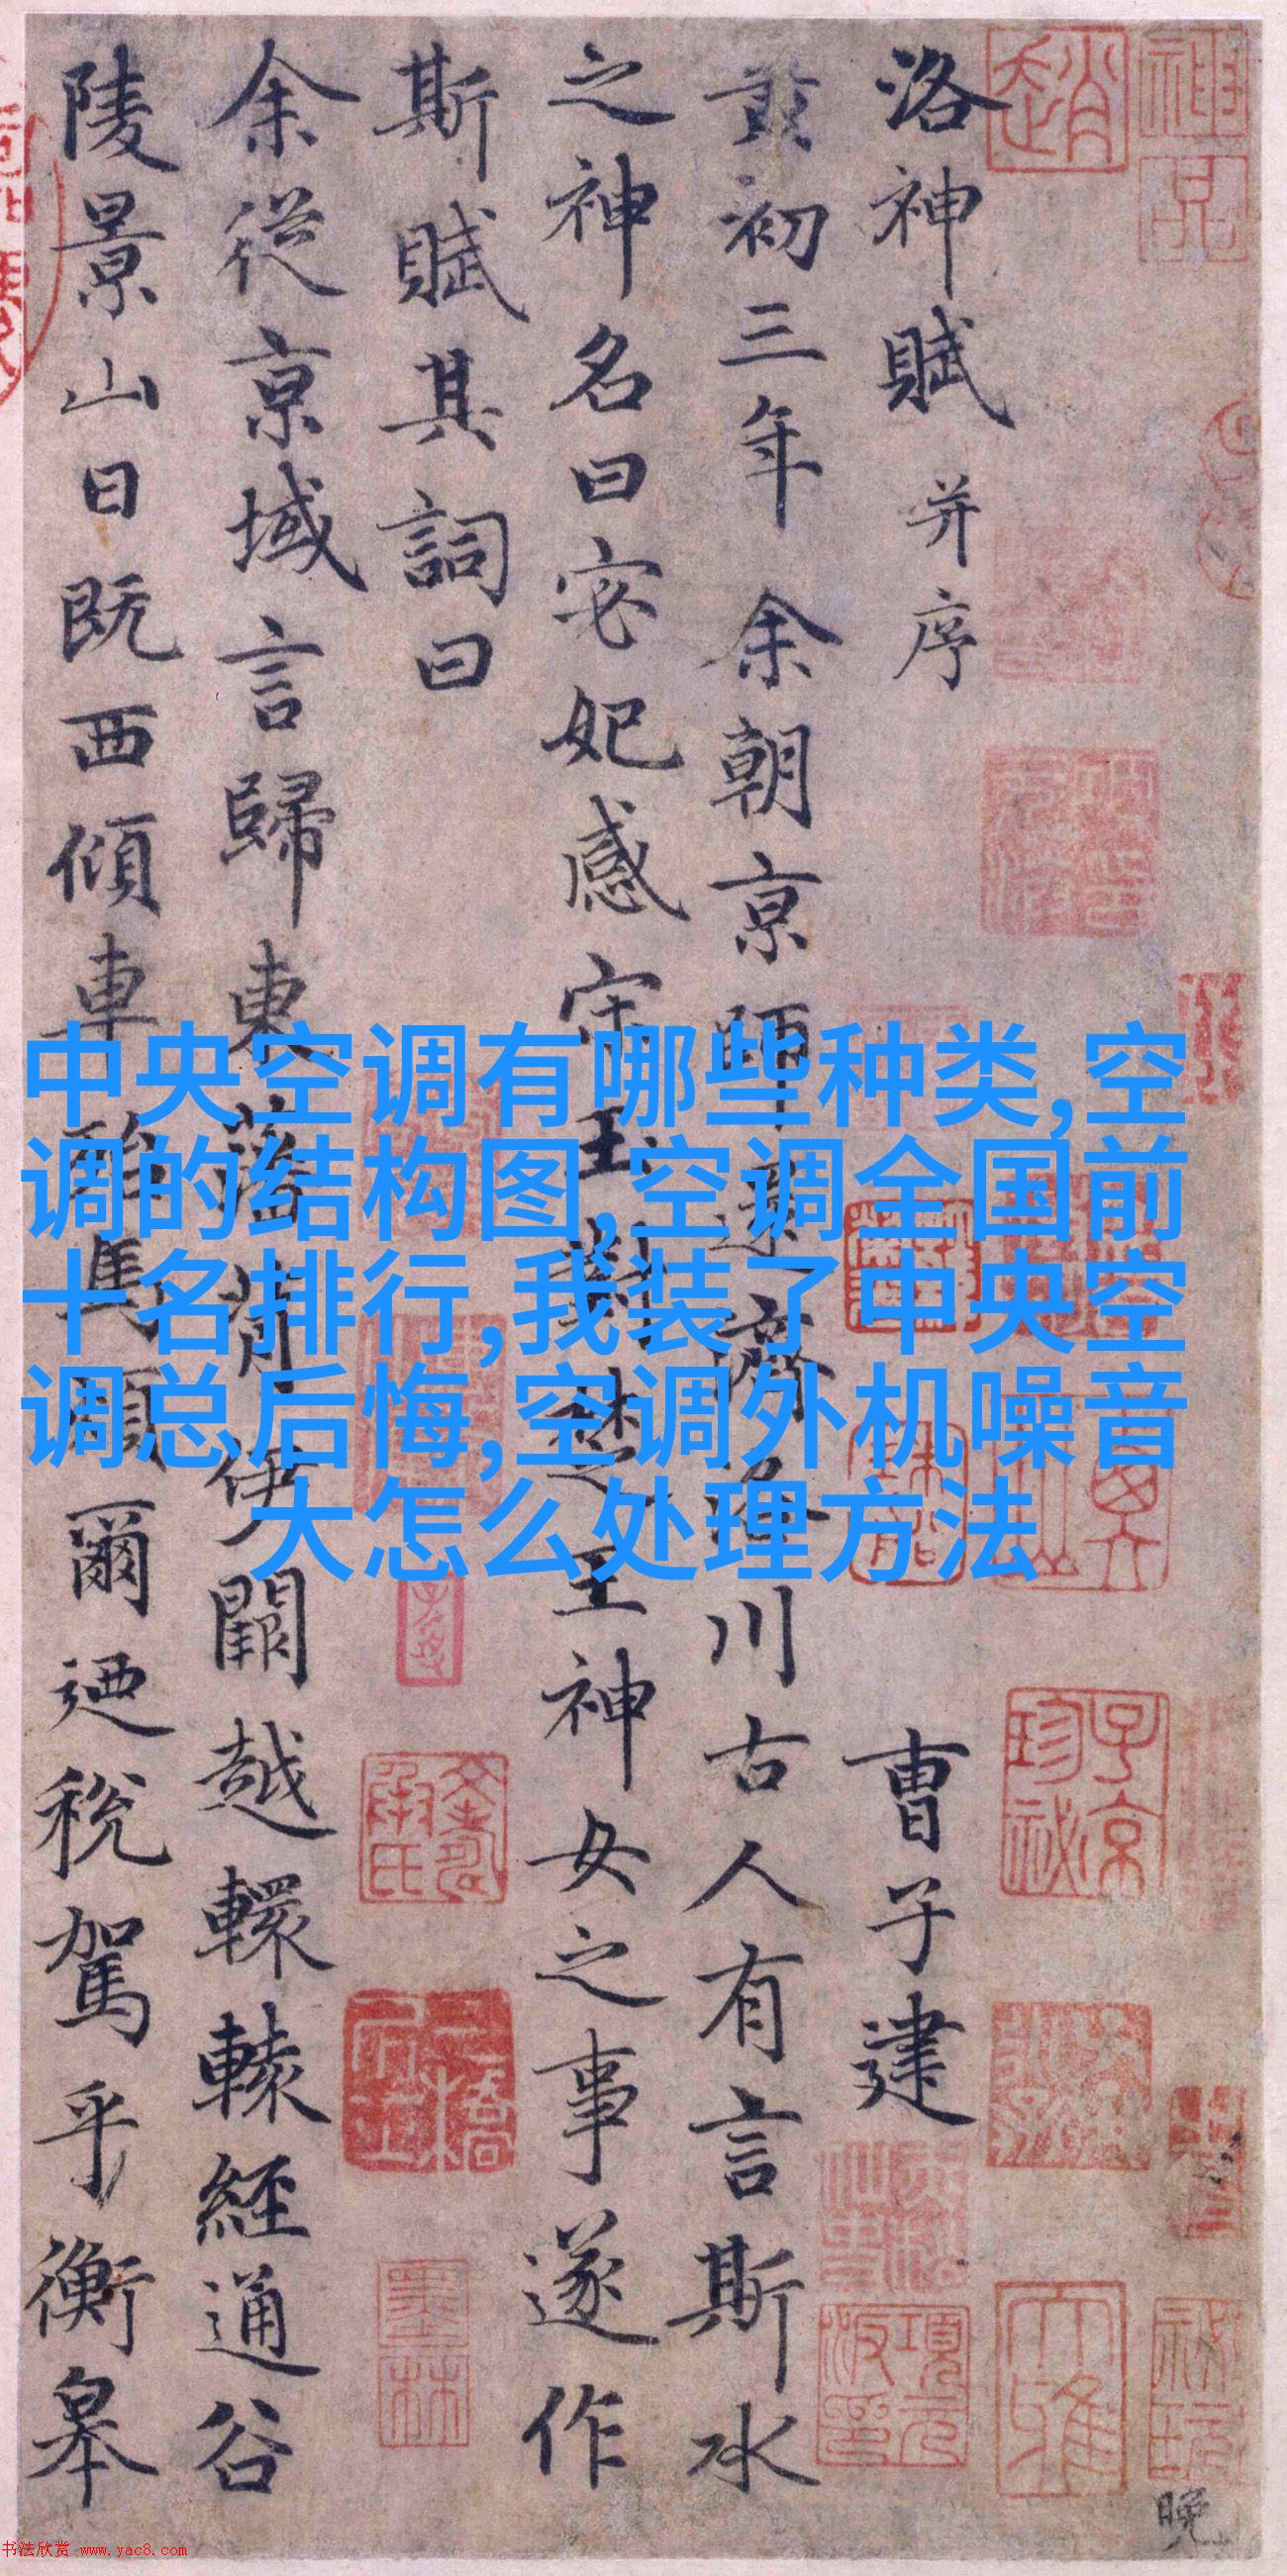 洛神賦 并序
曹子建
黄初三年余朝京師還濟洛川古人有言斯水
之神名曰宓妃感宋玉對楚王神女之事遂作
斯賦其詞曰
余從京域言歸東藩背伊闕越轘轅經通谷
陵景山日既西傾車殆馬煩爾迺稅駕乎衡皋
中央空调有哪些种类,空
调的结构图,空调全国前
十名排行,我装了中央空
调总后悔,空调外机噪音
大怎么处理方法
趙
子京珍祕
墨林
晚
书法欣赏 www.yac8.com